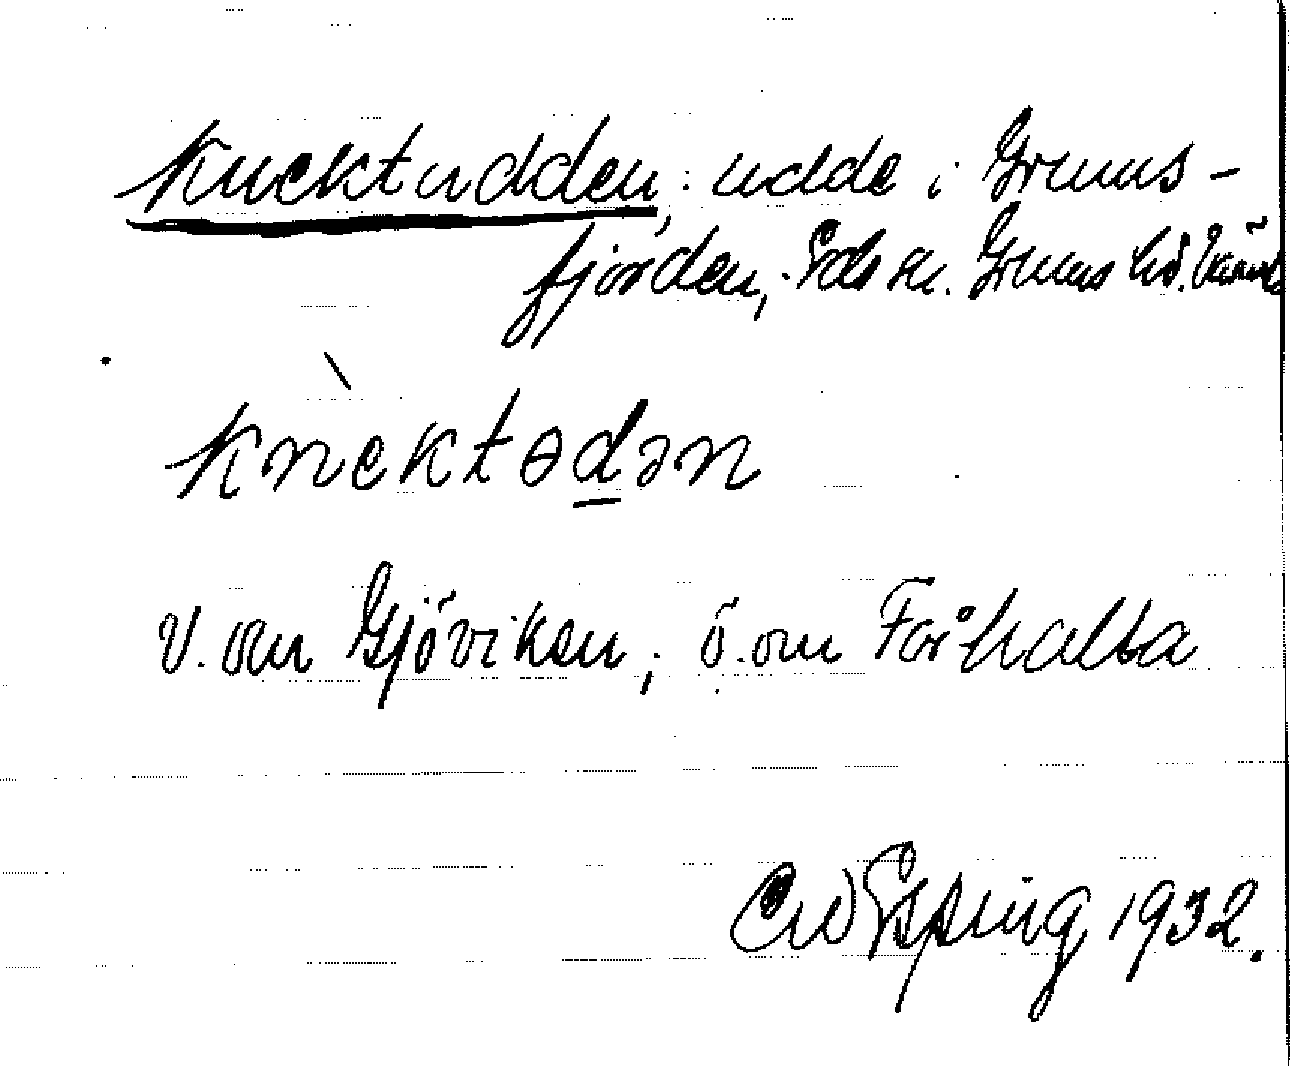 Knektudden, : udde i Grums-
fjorden, Eds sn. Grums hd. Värml
knèktɵdən
V. om Gjöviken, ö. om Fårhalla
Esping 1932.